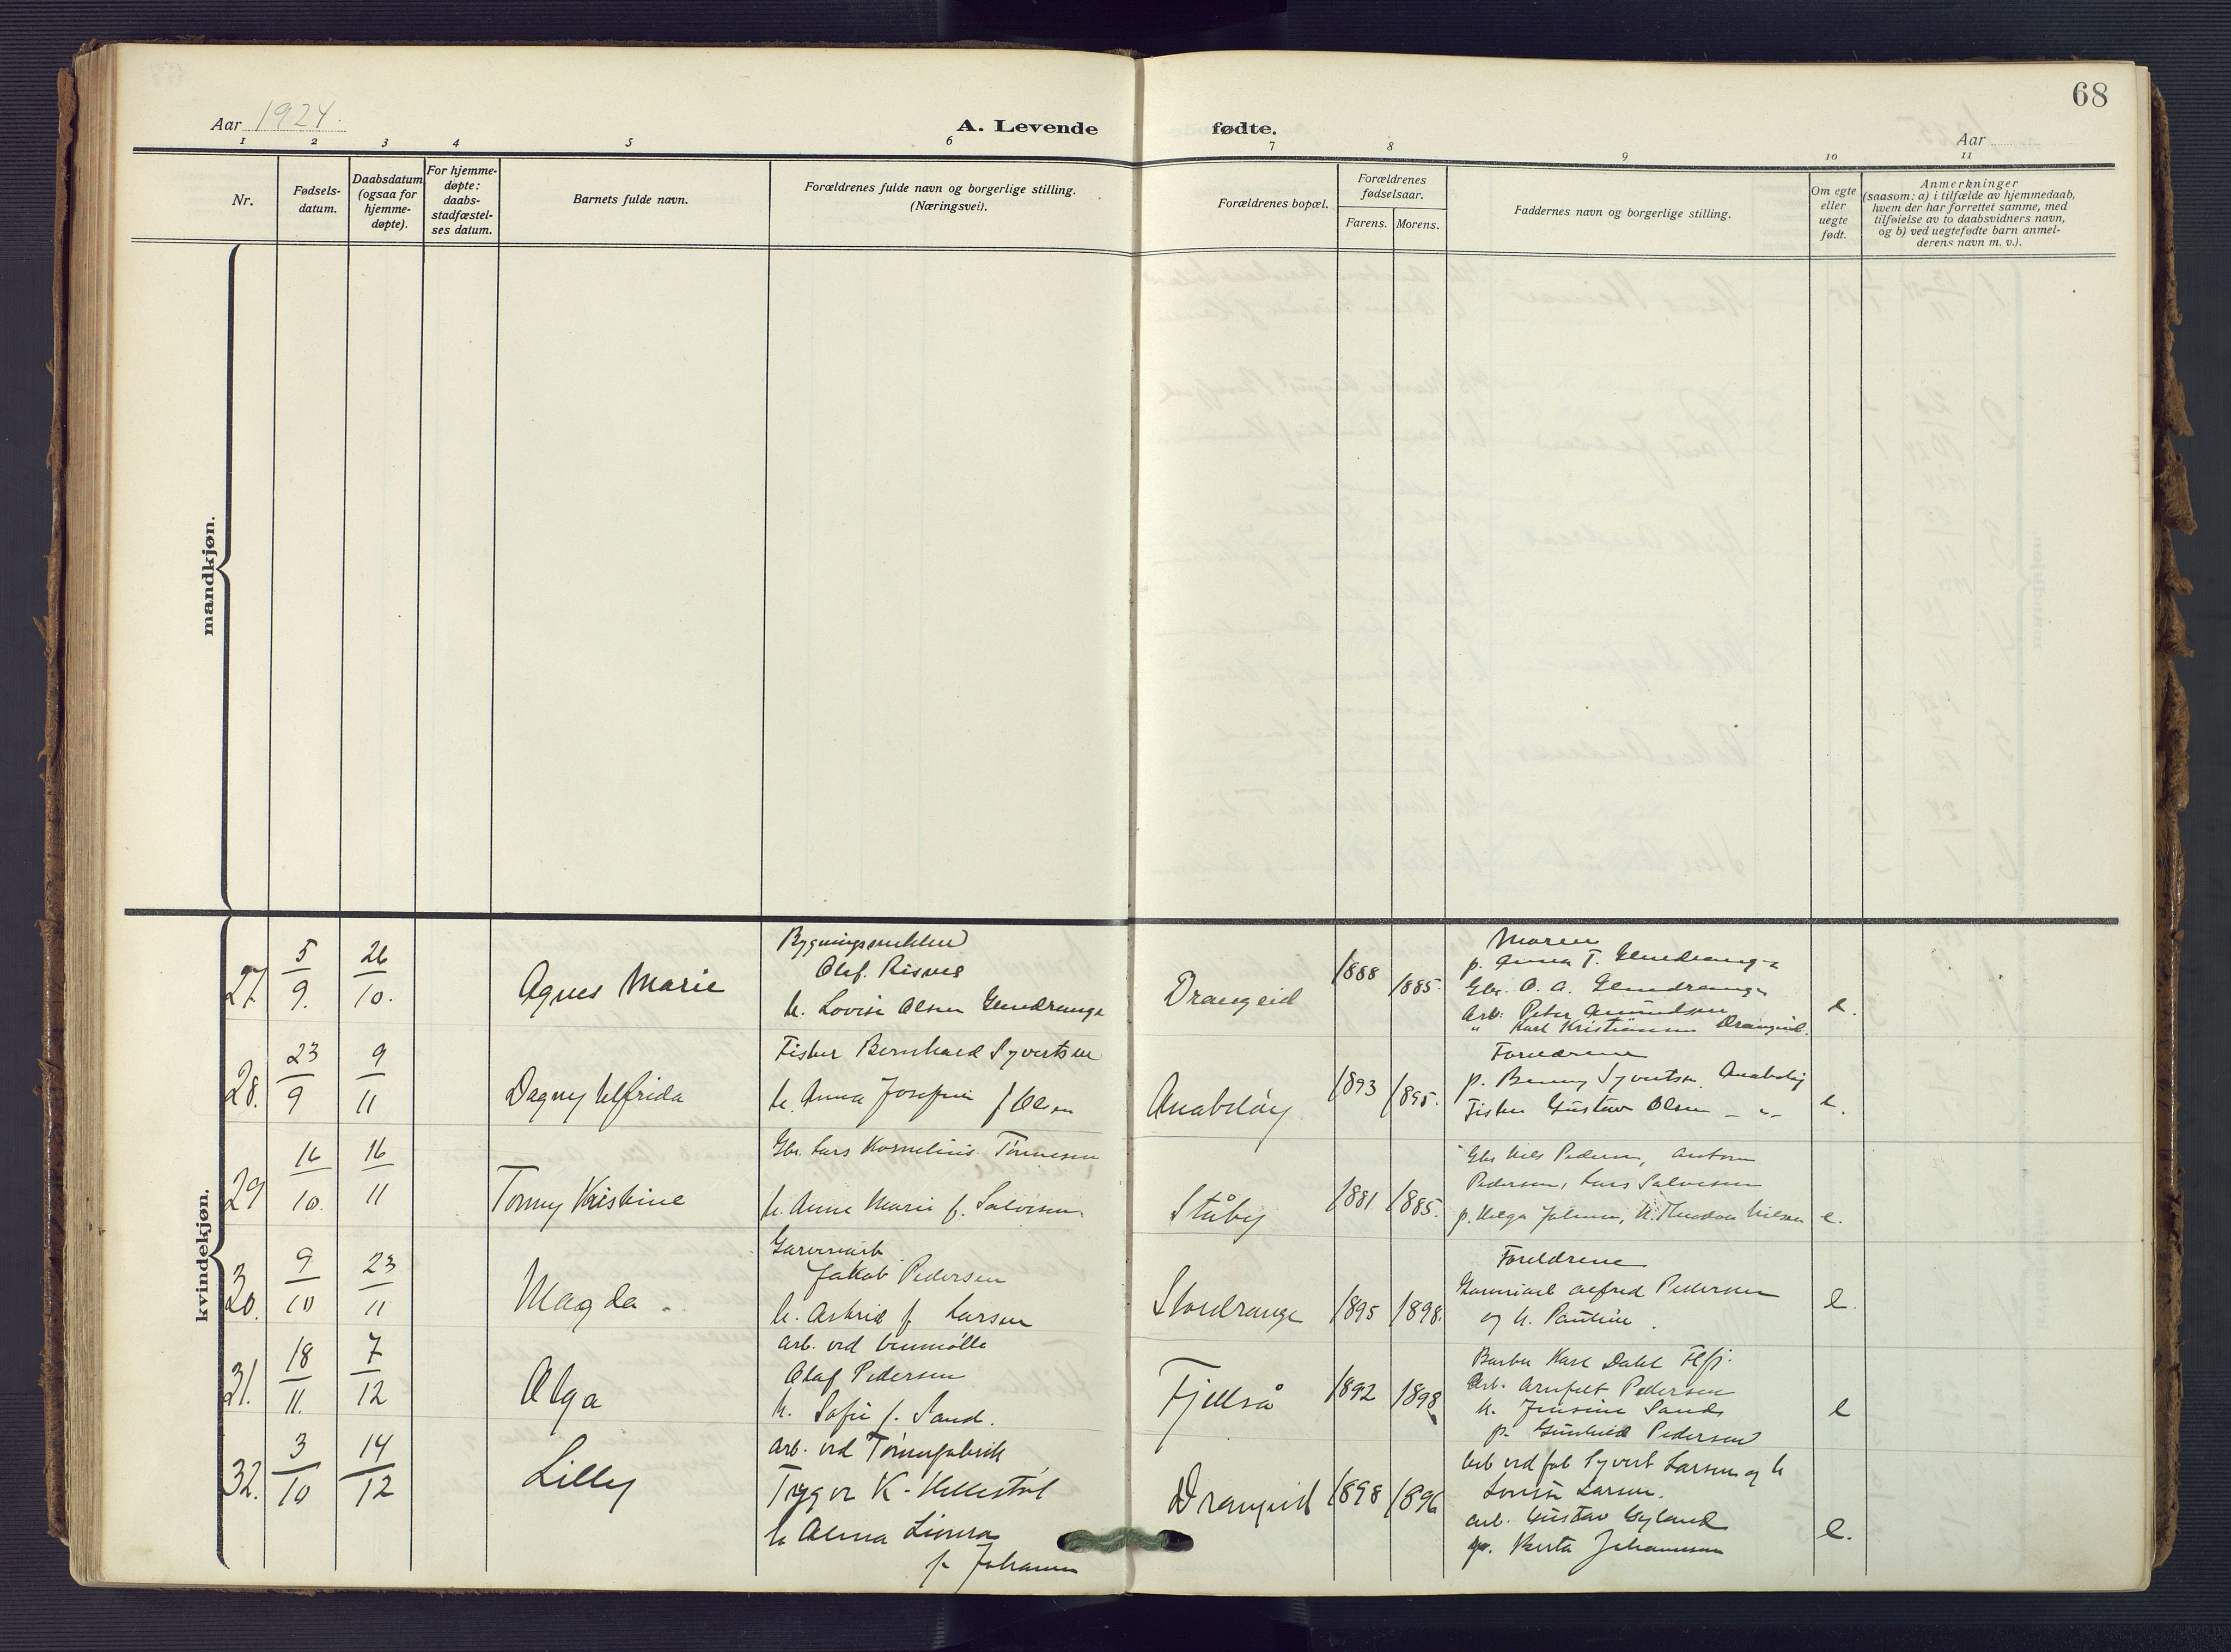 68
Aar 1924.
A. Levende fødte.
Aar
1 2 3 4 5 6 7 8 9 10 11
Nr.
Fødsels-
datum.
Daabsdatum
(ogsaa for
hjemme-
døpte).
For hjemme-
døpte:
daabs-
stadfæstel-
ses datum.
Barnets fulde navn.
Forældrenes fulde navn og borgerlige stilling.
(Næringsvei).
Forældrenes bopæl.
Forældrenes
fødselsaar.
Farens. Morens.
Faddernes navn og borgerlige stilling.
Om egte
eller
uegte
født.
Anmerkninger
(saasom: a) i tilfælde av hjemmedaab,
hvem der har forrettet samme, med
tilføielse av to daabsvidners navn,
og b) ved uegtefødte barn anmel-
derens navn m. v.).
mandkjøn.
kvindekjøn.
27. 5/9. 26/10.
Agnes Marie
Olaf Risnes
h. Lovise Olsen
Drangeid
1888 1885.
Moren
p. Anna T.
Gbr. O. A.
Arb. Peter Amundsen
" Karl Kristiansen Drangeid.
e.
28. 23/9 9/11
Dagny Alfrida
Fisker Bernhard Syvertsen
h. Anna Josefine f. Olsen
Anabeløy
1893 1895.
Foreldrene
p. Benny Syvertsen, Anabeløy
Fisker Gustav Olsen - " -
e.
29 16/10. 16/11
Tonny Kristine
Gbr. Lars Kornelius Tønnesen
h. Anne Marie f. Salvesen
Ståby
1881 1885.
Gbr Nils Pedersen, Anton
Pedersen, Lars Salvesen
p. Helga h. Theodora Nilsen
e.
30. 9/10 23/11
Magda.
Garveriarb.
Jakob Pedersen
h. Astrid f. Larsen
Stordrange
1895 1898.
Foreldrene
Garveriarb Alfred Pedersen
og h. Pauline.
e.
31. 18/11. 7/12
Olga
arb. ved
Olaf Pedersen
h. Sofie f. Sand.
Fjellså
1892 1898
Barber Karl Dahl Flfj.
Arb. Arnfelt Pedersen
h. Jensine Sands
p. Gunhild Pedersen
e
32. 3/10 14/12
Lilly
arb. ved Tønnefabrik
Trygve K. Hellestøl
h Alma
f. Johansen
Drangeid
1898 1896
Arb ved fab Syvert Larsen og h
Lovise Larsen.
arb. Gustav Gyland
p. Berta Johannesen
e.